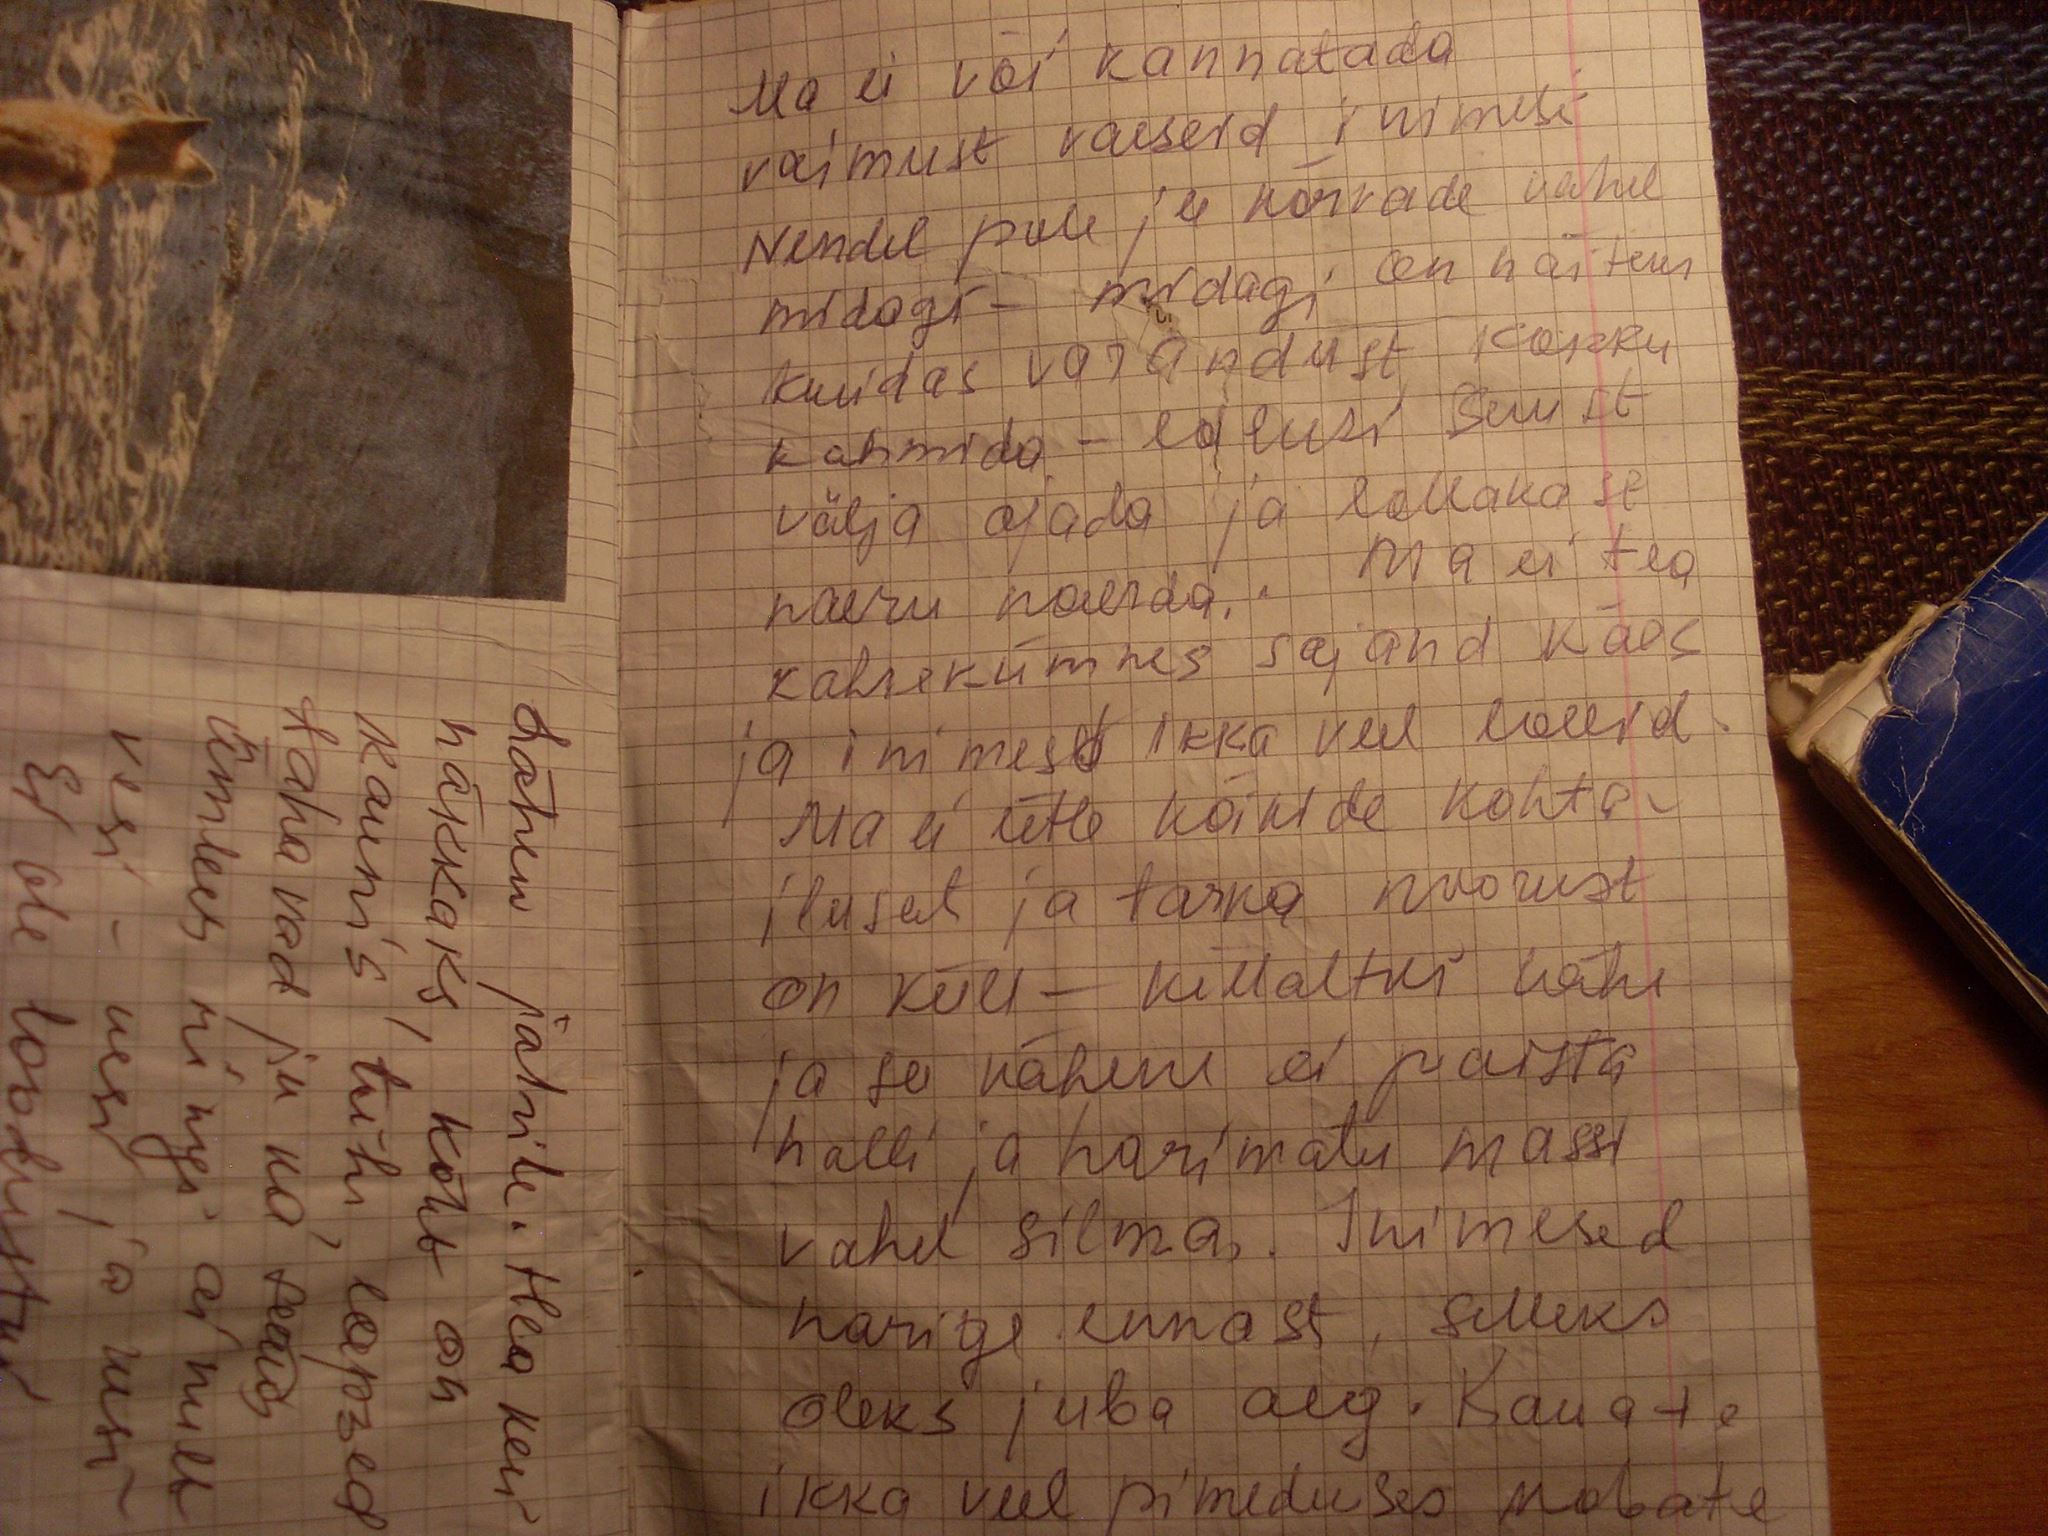 Ma ei või kannatada
vaimust vaeseid inimesi
Nendel pole ju kõrvade vahel
midagi - midagi, on näiteks
kuidas varandust kokku
kahmida - suust
välja ajada ja lollakast
naeru naerda. Ma ei tea
kahekümnes sajand käes
ja inimesed ikka veel lollid.
Ma ei ütle kõikide kohta -
ilusat ja tarka noorust
on küll - küllaltki vähe
ja se vähene ei paista
halli ja harimatu massi
vahel silma. Inimesed
harige ennast, selleks
oleks juba aeg. Kaua te
ikka veel pimeduses kobate
Lähen jahile. Hea kei
näkkaks, kõht on
Raunis tühi, lapsed
Tahavad ju ka
Ümber ringi ainult
vesi - vesi ja vesi -
Ei ole loodustki